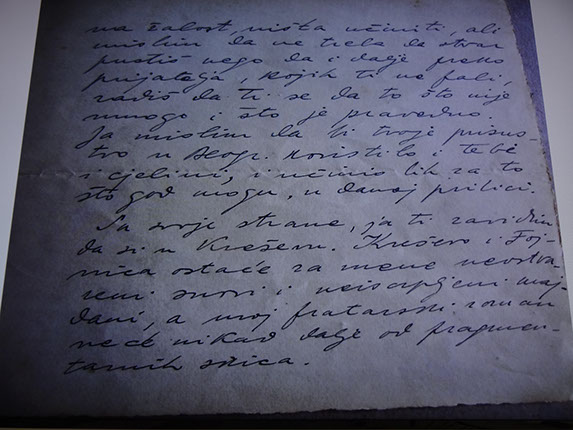 na žalost, ništa učiniti, ali
mislim da ne treba da stvar
pustiš nego da i dalje preko
prijatelja, kojih ti ne fali,
radiš da ti se da to što nije
mnogo i što je pravedno.
Ja mislim da bi tvoje prisus-
tvo u Beogr. koristilo i tebi
i cjelini, i učinio bih za to
što god mogu, u danoj prilici.
Sa svoje strane, ja ti zavidim
da si u Kreševu. Kreševo i Foj-
nica ostaće za mene neostva-
reni snovi i neiscrpljeni maj-
dani, a moj fratarski roman
neće nikad dalje od fragmen-
tarnih skica.